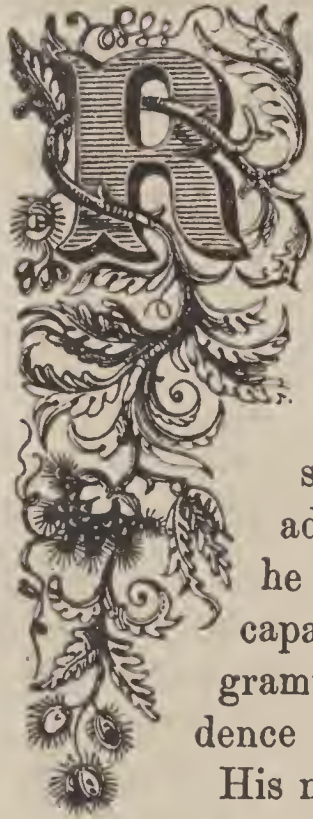 R
s
ad
he
capa
gram
dence
His n